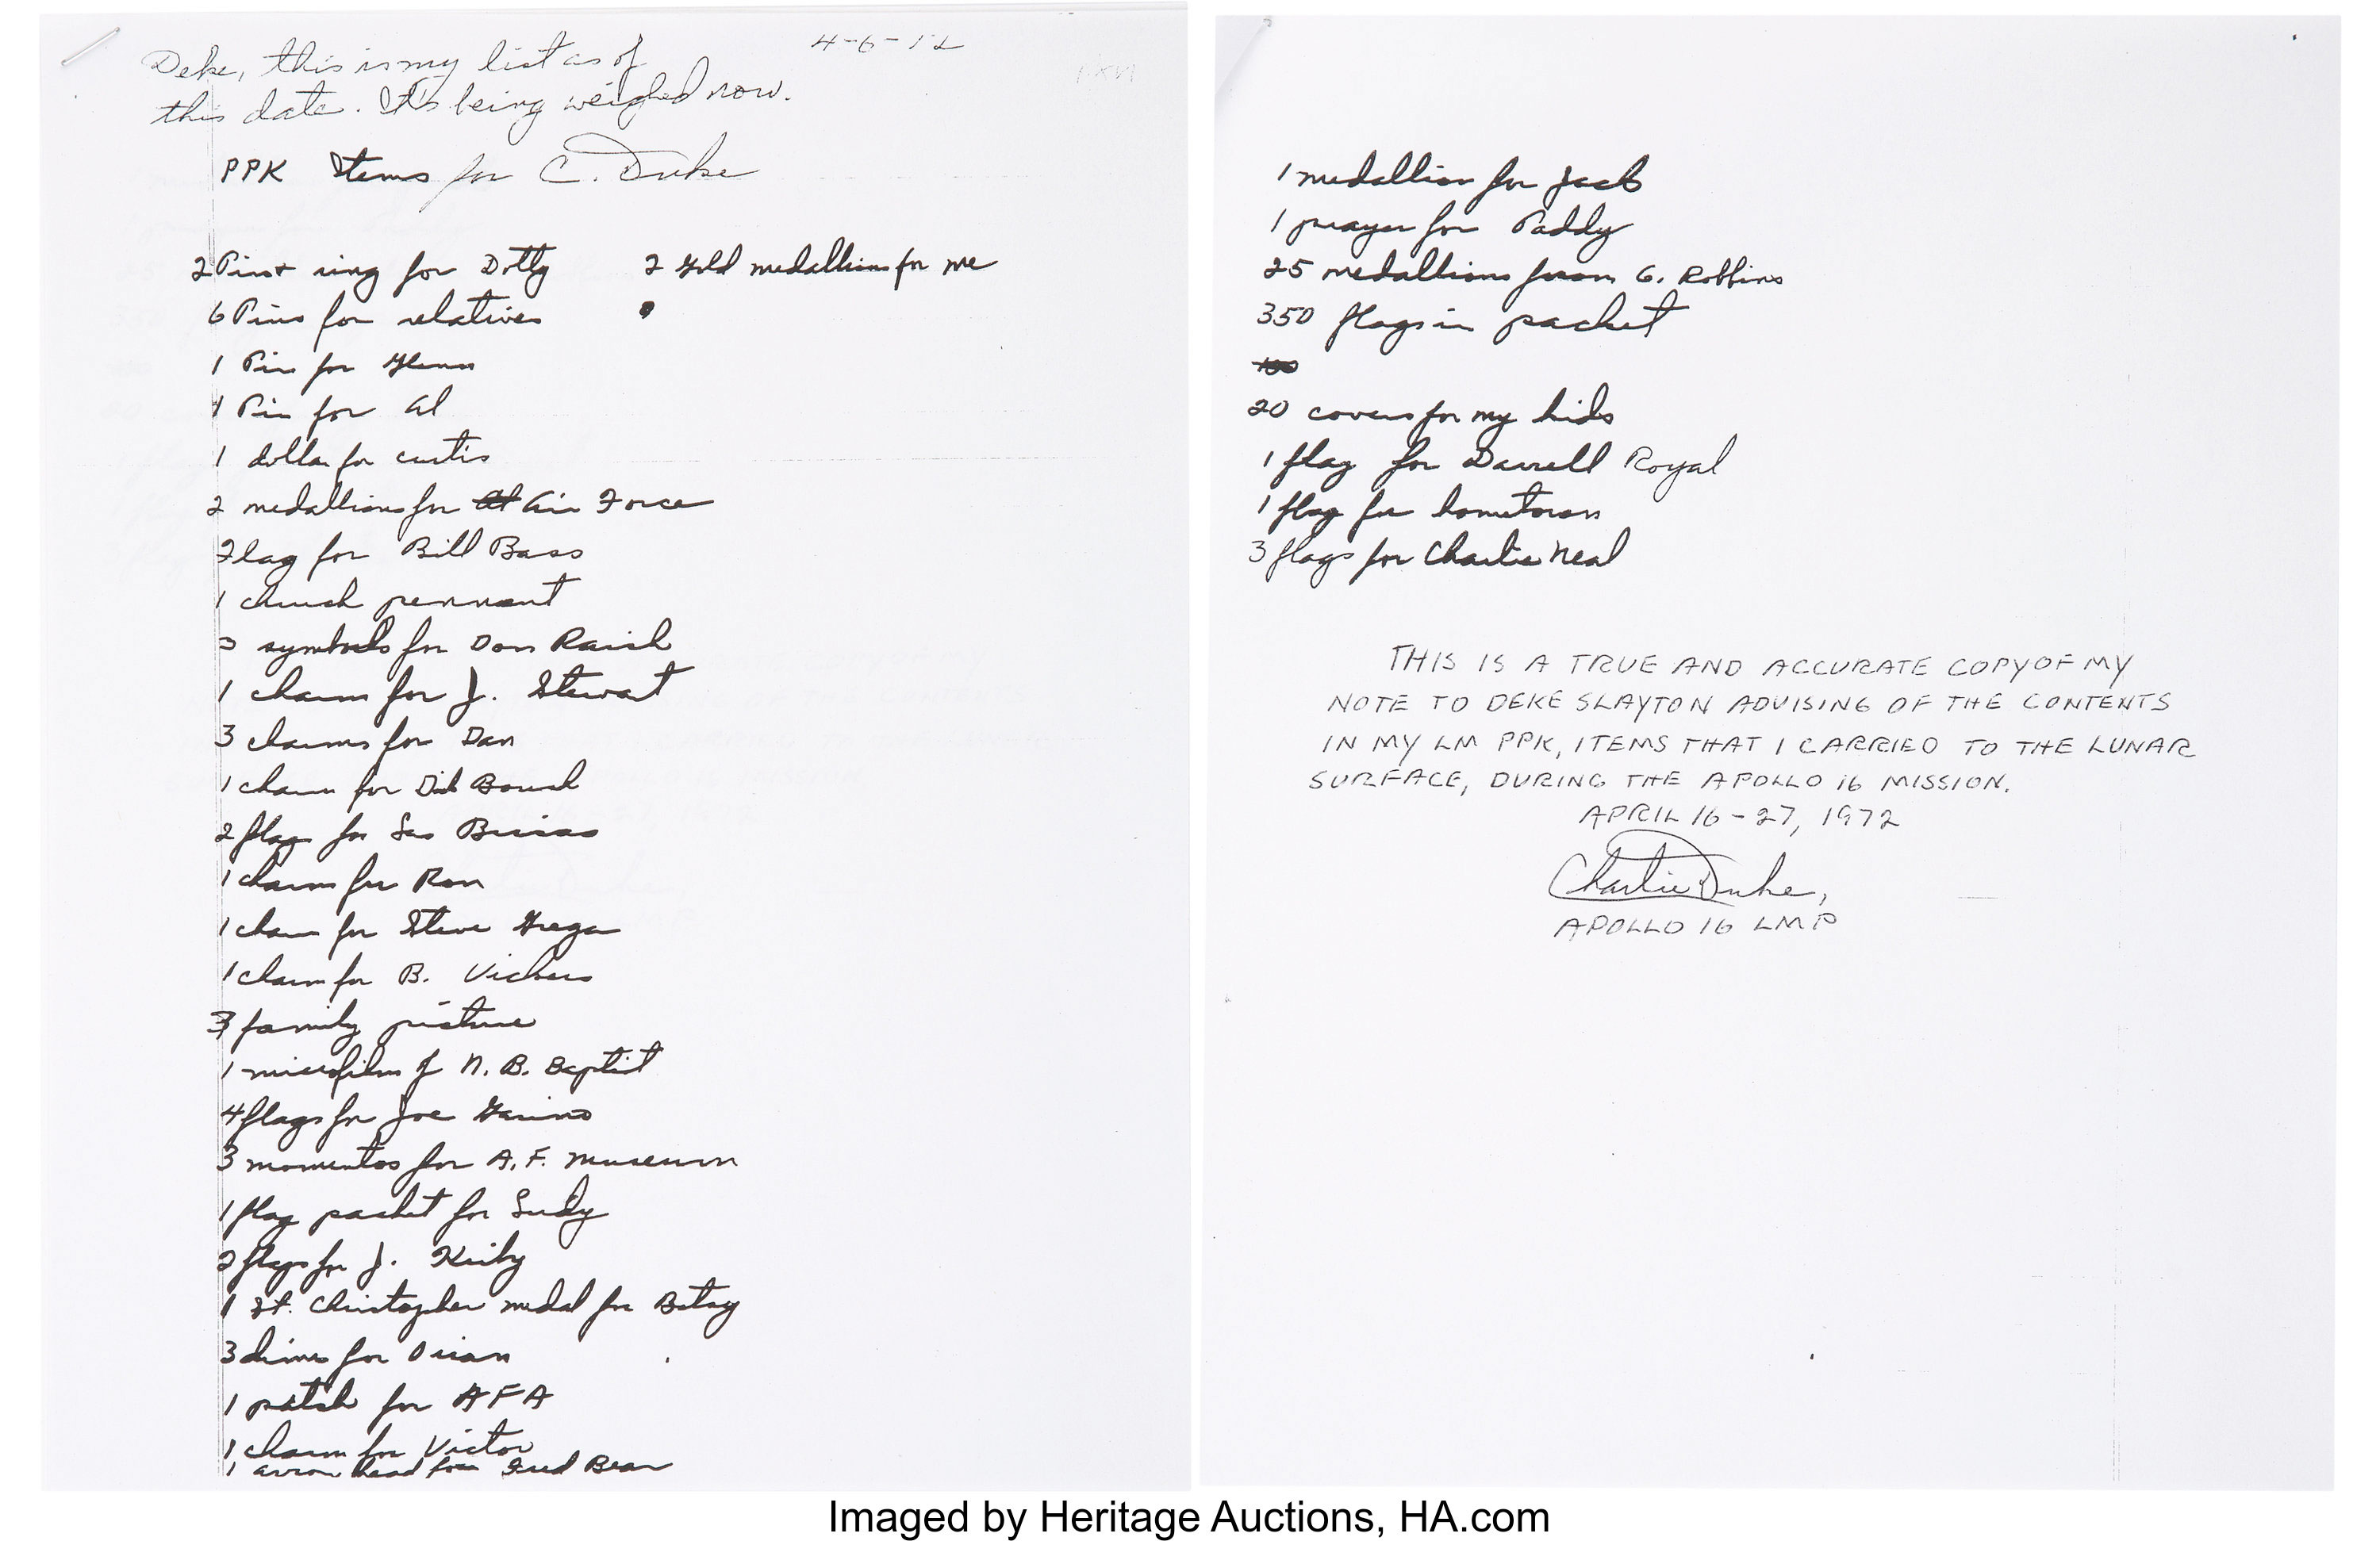 4-6-72
Deke, this is my list as of
this date. It's being weighed now.
PPK Items for C. Duke
2 Pins + ring for Dotty 2 Gold medallions for me
6 Pins for relatives
1 Pin for Glenn
1 Pin for Al
1 dollar for curtis
2 medallions for Air Force
Flag for Bill Bass
1 church pennant
3 symbols for Don Raish
1 charm for J. Stewart
3 charms for Dan
1 charm for Dick
2 flags for
1 charm for Ron
1 charm for Steve
1 charm for B. Vickers
3 family picture
1 microfilm of N. B. Baptist
4 flags for Joe
3 momentos for A.F. museum
1 flag packet for Judy
2 flags for J. Kirby
1 St. Christopher medal for Betsy
3 dimes for
1 patch for AFA
1 charm for Victor
1 arrow head for Fred Bear
1 medallion for Jack
1 prayer for Paddy
25 medallions from G. Robbins
350 flags in packet
20 covers for my kids
1 flag for Darrell Royal
1 flag for hometown
3 flags for Charlie Neal
THIS IS A TRUE AND ACCURATE COPY OF MY
NOTE TO DEKE SLAYTON ADVISING OF THE CONTENTS
IN MY LM PPK, ITEMS THAT I CARRIED TO THE LUNAR
SURFACE, DURING THE APOLLO 16 MISSION.
APRIL 16-27, 1972
Charlie Duke,
APOLLO 16 LMP
Imaged by Heritage Auctions, HA.com